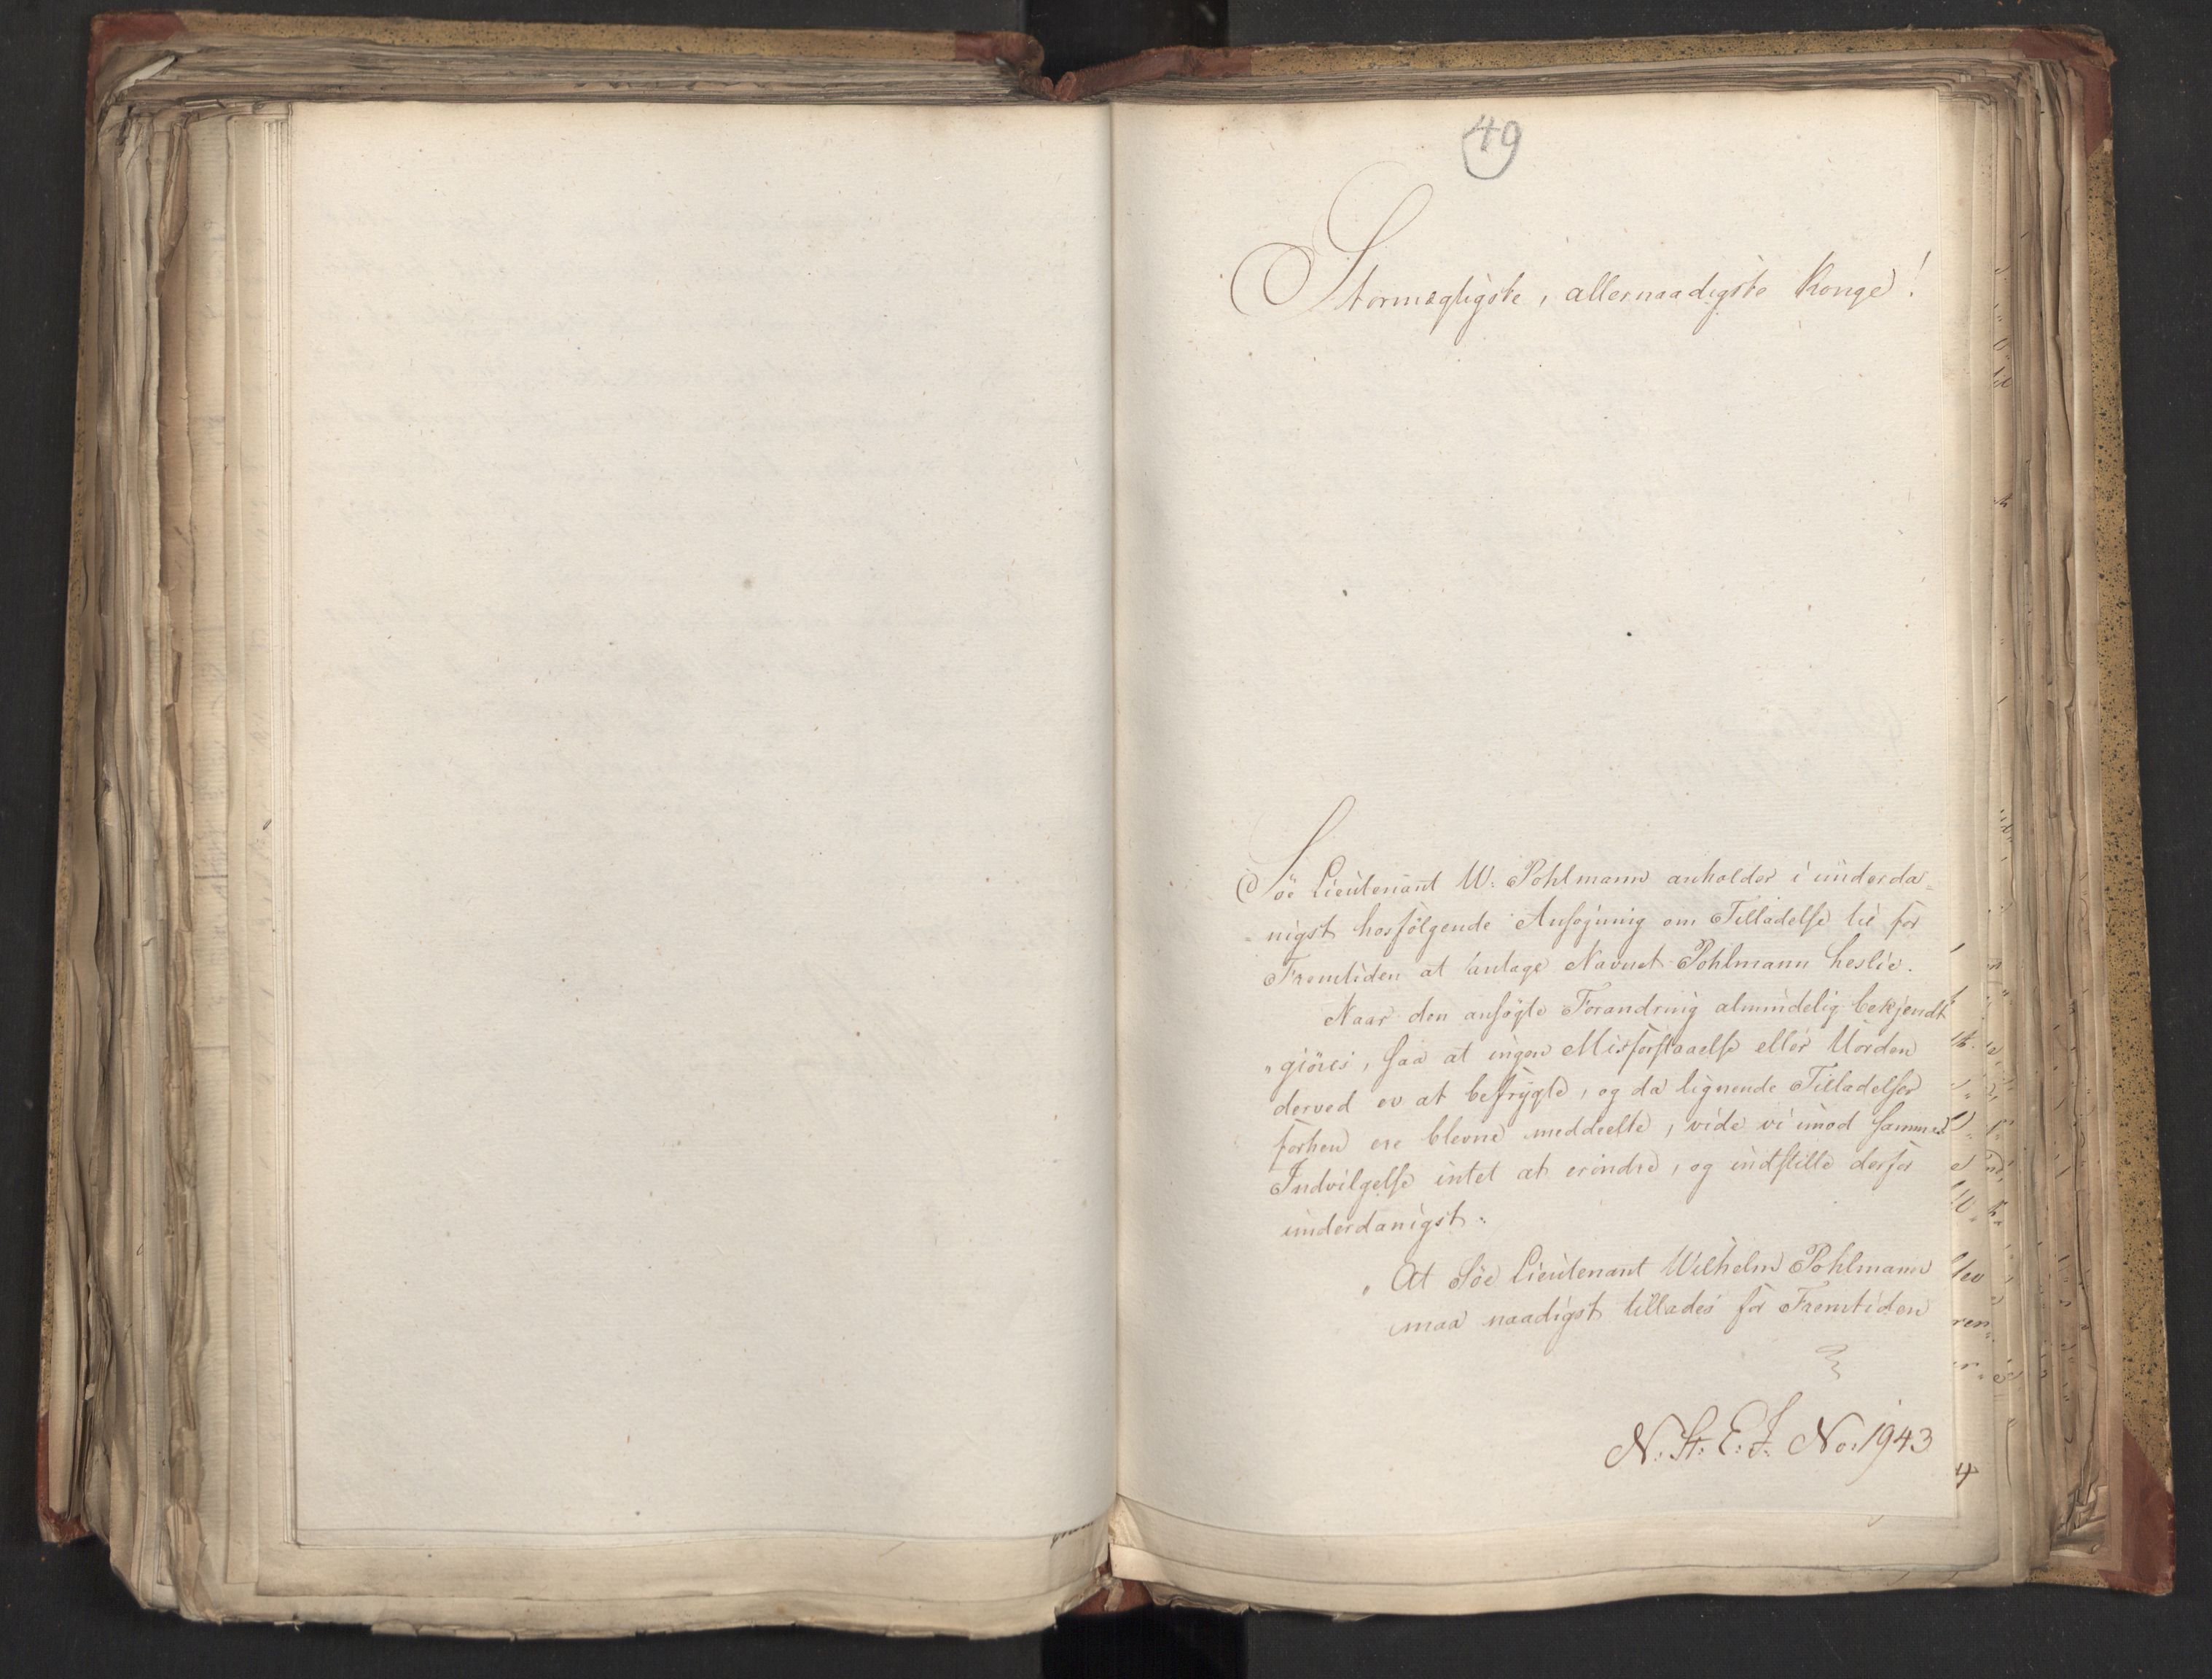 49
Stormægtigste, allernaadigste Konge!
Söe Lieutenant W. Pohlmann anholder i underda-
nigst hosfölgende Ansögning om Tilladelse til for
Fremtiden at antage Navnet Pohlmann Leslie.
Naar den ansögte Forandring almindelig bekjendt
giöres, saa at ingen Misforstaaelse eller Uorden
derved er at befrygte, og da lignende Tilladelser
forhen ere blevne meddeelte, vide vi imod sammes
Indvilgelse intet at erindre, og indstille derfor
underdanigst:
"At Söe Lieutenant Wilhelm Pohlmann
maa naadigst tillades for Fremtiden
N. St. E. J. No. 1943